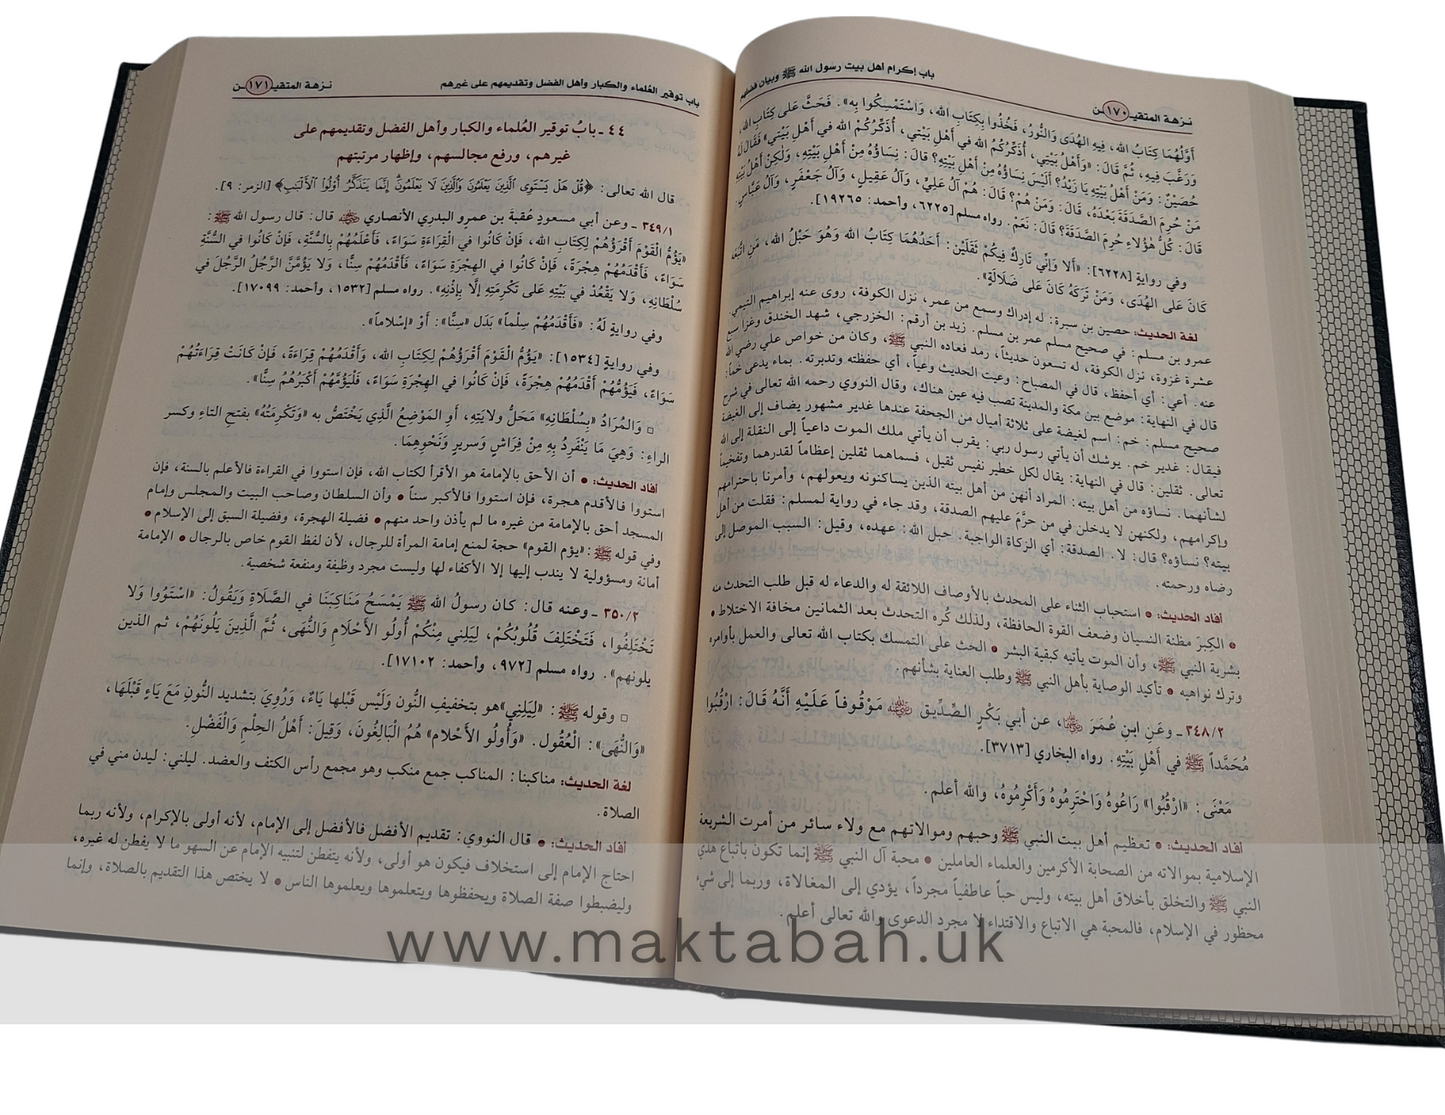 باب إكرام أهل بيت رسول الله ﷺ وبيان فضلهم
نـزهـة المتقيـــن ١٧٠
أَوَّلُهُمَا كِتَابُ الله، فِيهِ الهُدَى وَالنُّورُ، فَخُذُوا بِكِتَابِ الله، وَاسْتَمْسِكُوا بِهِ». فَحَثَّ عَلَى كِتَابِ الله،
وَرَغَّبَ فِيهِ، ثُمَّ قَالَ: «وَأَهْلُ بَيْتِي، أُذَكِّرُكُمُ الله في أَهْلِ بَيْتِي، أُذَكِّرُكُمُ الله في أَهْلِ بَيْتِي» فَقَالَ لَهُ
حُصَيْنٌ: وَمَنْ أَهْلُ بَيْتِهِ يَا زَيْدُ؟ أَلَيْسَ نِسَاؤُهُ مِنْ أَهْلِ بَيْتِهِ؟ قَالَ: نِسَاؤُهُ مِنْ أَهْلِ بَيْتِهِ، وَلَكِنْ أَهْلُ بَيْتِهِ
مَنْ حُرِمَ الصَّدَقَةَ بَعْدَهُ، قَالَ: وَمَنْ هُمْ؟ قَالَ: هُمْ آلُ عَلِيٍّ، وَآلُ عَقِيلٍ، وَآلُ جَعْفَرٍ، وَآلُ عَبَّاسٍ،
قَالَ: كُلُّ هَؤُلَاءِ حُرِمَ الصَّدَقَةَ؟ قَالَ: نَعَمْ. رواه مسلم [٦٢٢٥، وأحمد: ١٩٢٦٥].
وفي روايةٍ [٦٢٢٨]: «أَلَا وَإِنِّي تَارِكٌ فِيكُمْ ثَقَلَيْنِ: أَحَدُهُمَا كِتَابُ الله وَهُوَ حَبْلُ الله، مَنِ اتَّبَعَهُ
كَانَ عَلَى الهُدَى، وَمَنْ تَرَكَهُ كَانَ عَلَى ضَلَالَةٍ».
لغة الحديث: حصين بن سبرة: له إدراك وسمع من عمر، نزل الكوفة، روى عنه إبراهيم التيمي.
عمرو بن مسلم: في صحيح مسلم عمر بن مسلم. زيد بن أرقم: الخزرجي، شهد الخندق وغزا سبع
عشرة غزوة، نزل الكوفة، له تسعون حديثاً، رمد فعاده النبي ﷺ، وكان من خواص علي رضي الله
عنه. أعي: أي أحفظ، قال في المصباح: وعيت الحديث وعياً، أي حفظته وتدبرته. بماء يدعى خماً:
قال في النهاية: موضع بين مكة والمدينة تصب فيه عين هناك، وقال النووي رحمه الله تعالى في شرح
صحيح مسلم: خم: اسم لغيضة على ثلاثة أميال من الجحفة عندها غدير مشهور يضاف إلى الغيضة
فيقال: غدير خم. يوشك أن يأتي رسول ربي: يقرب أن يأتي ملك الموت داعياً إلى النقلة إلى الله
تعالى. ثقلين: قال في النهاية: يقال لكل خطير نفيس ثقيل، فسماهما ثقلين إعظاماً لقدرهما وتفخيماً
لشأنهما. نساؤه من أهل بيته: المراد أنهن من أهل بيته الذين يساكنونه ويعولهم، وأمرنا باحترامهم
وإكرامهم، ولكنهن لا يدخلن في من حرَّم عليهم الصدقة، وقد جاء في رواية لمسلم: فقلت من أهل
بيته؟ نساؤه؟ قال: لا. الصدقة: أي الزكاة الواجبة. حبل الله: عهده، وقيل: السبب الموصل إلى
رضاه ورحمته.
أفاد الحديث: • استحباب الثناء على المحدث بالأوصاف اللائقة له والدعاء له قبل طلب التحدث منه
• الكِبَرَ مظنة النسيان وضعف القوة الحافظة، ولذلك كُره التحدث بعد الثمانين مخافة الاختلاط •
بشرية النبي ﷺ، وأن الموت يأتيه كبقية البشر • الحث على التمسك بكتاب الله تعالى والعمل بأوامره
وترك نواهيه • تأكيد الوصاية بأهل النبي ﷺ وطلب العناية بشأنهم.
٣٤٨/٢ ـ وعَنِ ابنِ عُمَرَ ﵄، عن أبي بَكْرٍ الصِّدِّيقِ ﵁ مَوْقُوفاً عَلَيْهِ أَنَّهُ قَالَ: ارْقُبُوا
مُحَمَّداً ﷺ في أَهْلِ بَيْتِهِ. رواه البخاري [٣٧١٣].
مَعْنَى: «ارْقُبُوا» رَاعُوهُ وَاحْتَرِمُوهُ وَأَكْرِمُوهُ، والله أعلم.
أفاد الحديث: • تعظيم أهل بيت النبي ﷺ وحبهم وموالاتهم مع ولاء سائر من أمرت الشريعة
الإسلامية بموالاته من الصحابة الأكرمين والعلماء العاملين • محبة آل النبي ﷺ إنما تكون باتباع هدي
النبي ﷺ والتخلق بأخلاق أهل بيته، وليس حباً عاطفياً مجرداً، يؤدي إلى المغالاة، وربما إلى شيء
محظور في الإسلام، فالمحبة هي الاتباع والاقتداء لا مجرد الدعوى والله تعالى أعلم.
باب توقير العُلماء والكبار وأهل الفضل وتقديمهم على غيرهم
نـزهـة المتقيـــن ١٧١
٤٤ ـ بابُ توقير العُلماء والكبار وأهل الفضل وتقديمهم على
غيرهم، ورفع مجالسهم، وإظهار مرتبتهم
قال الله تعالى: ﴿قُلْ هَلْ يَسْتَوِى ٱلَّذِينَ يَعْلَمُونَ وَٱلَّذِينَ لَا يَعْلَمُونَۗ إِنَّمَا يَتَذَكَّرُ أُو۟لُوا۟ ٱلْأَلْبَٰبِ﴾ [الزمر: ٩].
٣٤٩/١ ـ وعن أبي مسعودٍ عُقبةَ بن عمرٍو البدري الأنصاري ﵁ قال: قال رسول الله ﷺ:
«يَؤُمُّ الْقَوْمَ أَقْرَؤُهُمْ لِكِتَابِ الله، فَإِنْ كَانُوا في الْقِرَاءَةِ سَوَاءً، فَأَعْلَمُهُمْ بِالسُّنَّةِ، فَإِنْ كَانُوا في السُّنَّةِ
سَوَاءً، فَأَقْدَمُهُمْ هِجْرَةً، فَإِنْ كَانُوا في الهِجْرَةِ سَوَاءً، فَأَقْدَمُهُمْ سِنًّا، وَلَا يَؤُمَّنَّ الرَّجُلُ الرَّجُلَ في
سُلْطَانِهِ، وَلَا يَقْعُدْ في بَيْتِهِ عَلَى تَكْرِمَتِهِ إلَّا بِإِذْنِهِ». رواه مسلم [١٥٣٢، وأحمد: ١٧٠٩٩].
وفي روايةٍ لَهُ: «فَأَقْدَمُهُمْ سِلْماً» بَدَل «سِنًّا»: أَوْ «إسْلَاماً».
وفي روايةٍ [١٥٣٤]: «يَؤُمُّ الْقَوْمَ أَقْرَؤُهُمْ لِكِتَابِ الله، وَأَقْدَمُهُمْ قِرَاءَةً، فَإِنْ كَانَتْ قِرَاءَتُهُمْ
سَوَاءً، فَيَؤُمُّهُمْ أَقْدَمُهُمْ هِجْرَةً، فَإِنْ كَانُوا في الهِجْرَةِ سَوَاءً، فَلْيَؤُمَّهُمْ أَكْبَرُهُمْ سِنًّا».
□ وَالمُرَادُ «بِسُلْطَانِهِ» مَحَلُّ ولايَتِهِ، أَوِ المَوْضِعُ الَّذِي يَخْتَصُّ به «وَتَكْرِمَتُهُ» بفتحِ التاءِ وكسر
الراءِ: وَهِيَ مَا يَنْفَرِدُ بِهِ مِنْ فِرَاشٍ وَسريرٍ وَنَحْوِهِمَا.
أفاد الحديث: • أن الأحق بالإمامة هو الأقرأ لكتاب الله، فإن استووا في القراءة فالأعلم بالسنة، فإن
استووا فالأقدم هجرة، فإن استووا فالأكبر سناً • وأن السلطان وصاحب البيت والمجلس وإمام
المسجد أحق بالإمامة من غيره ما لم يأذن واحد منهم • فضيلة الهجرة، وفضيلة السبق إلى الإسلام •
وفي قوله ﷺ: «يؤم القوم» حجة لمنع إمامة المرأة للرجال، لأن لفظ القوم خاص بالرجال • الإمامة
أمانة ومسؤولية لا يندب إليها إلا الأكفاء لها وليست مجرد وظيفة ومنفعة شخصية.
٣٥٠/٢ ـ وعنه قال: كان رسولُ الله ﷺ يَمْسَحُ مَنَاكِبَنَا في الصَّلاةِ وَيَقُولُ: «اسْتَوُوا وَلا
تَخْتَلِفُوا، فَتَخْتَلِفَ قُلُوبُكُمْ، لِيَلِنِي مِنْكُمْ أُولُو الأَحْلَامِ وَالنُّهَى، ثُمَّ الَّذِينَ يَلُونَهُمْ، ثم الذين
يلونهم». رواه مسلم [٩٧٢، وأحمد: ١٧١٠٢].
□ وقوله ﷺ: «لِيَلِنِي» هو بتخفيفِ النُّون وَلَيْسَ قَبْلها يَاءٌ، وَرُوِيَ بتشديد النُّونِ مَعَ يَاءٍ قَبْلَهَا،
«وَالنُّهَى»: الْعُقُول. «وَأُولُو الأَحْلام» هُمُ الْبَالِغُونَ، وَقِيلَ: أَهْلُ الحِلْمِ وَالْفَضْلِ.
لغة الحديث: مناكبنا: المناكب جمع منكب وهو مجمع رأس الكتف والعضد. ليلني: ليدن مني في
الصلاة.
أفاد الحديث: • قال النووي: تقديم الأفضل فالأفضل إلى الإمام، لأنه أولى بالإكرام، ولأنه ربما
احتاج الإمام إلى استخلاف فيكون هو أولى، ولأنه يتفطن لتنبيه الإمام عن السهو ما لا يفطن له غيره،
وليضبطوا صفة الصلاة ويحفظوها ويتعلموها ويعلموها الناس • لا يختص هذا التقديم بالصلاة، وإنما
www.maktabah.uk